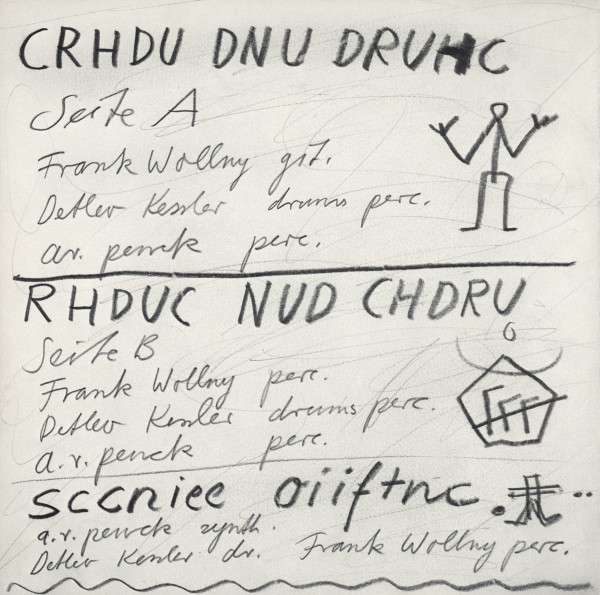 CRHDU DNU DRUHC
Seite A
Frank Wollny git.
Detlev Kessler drums perc.
a.r. penck perc.
RHDUC NUD CHDRU
Seite B
Frank Wollny perc.
Detlev Kessler drums perc.
a.r. penck perc.
sccniee oiiftnc
a.r. penck synth.
Detlev Kessler dr. Frank Wollny perc.